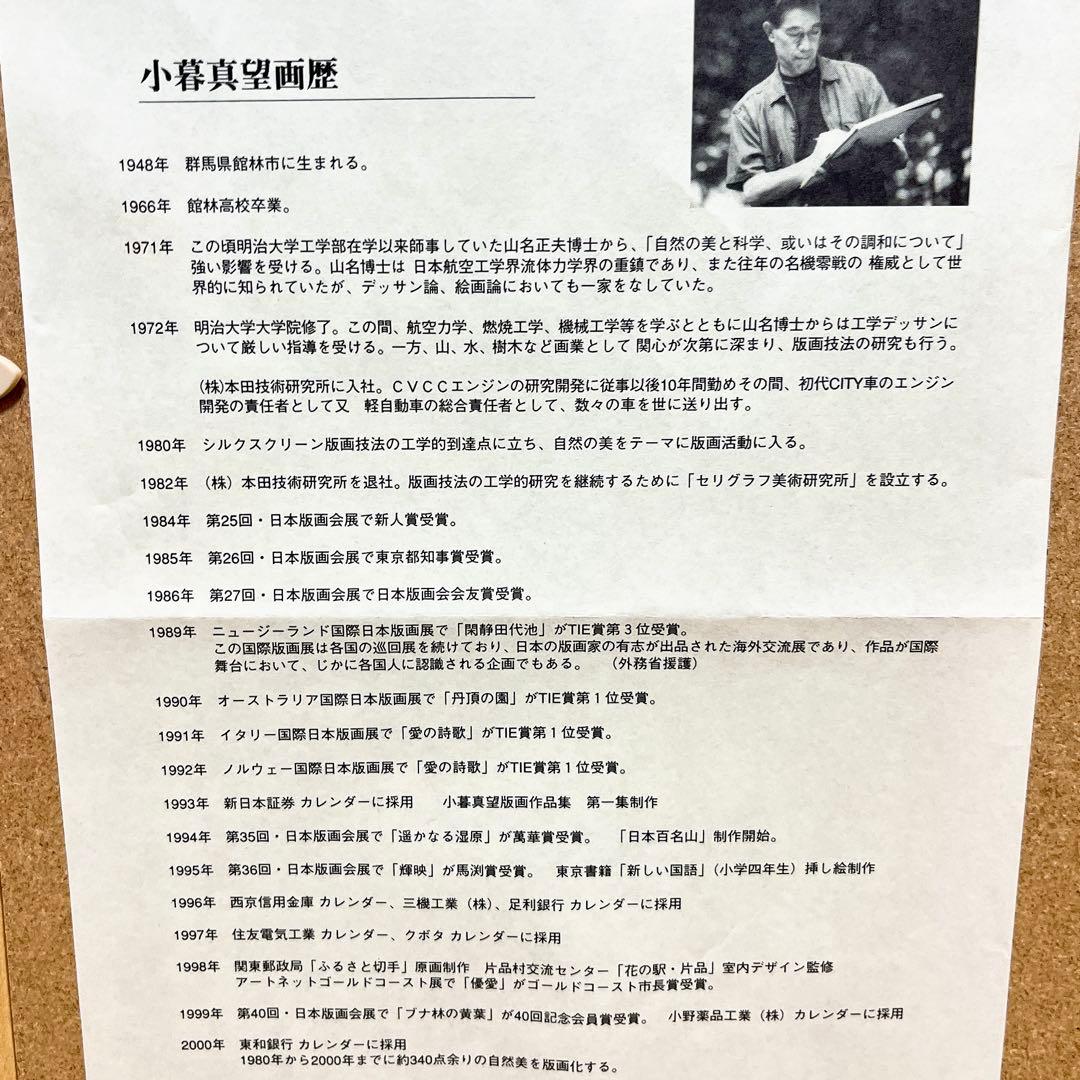 小暮真望画歴
1948年 群馬県館林市に生まれる。
1966年 館林高校卒業。
1971年 この頃明治大学工学部在学以来師事していた山名正夫博士から、「自然の美と科学、或いはその調和について」
強い影響を受ける。山名博士は 日本航空工学界流体力学界の重鎮であり、また往年の名機零戦の 権威として世
界的に知られていたが、デッサン論、絵画論においても一家をなしていた。
1972年 明治大学大学院修了。この間、航空力学、燃焼工学、機械工学等を学ぶとともに山名博士からは工学デッサンに
ついて厳しい指導を受ける。一方、山、水、樹木など画業として 関心が次第に深まり、版画技法の研究も行う。
(株)本田技術研究所に入社。CVCCエンジンの研究開発に従事以後10年間勤めその間、初代CITY車のエンジン
開発の責任者として又 軽自動車の総合責任者として、数々の車を世に送り出す。
1980年 シルクスクリーン版画技法の工学的到達点に立ち、自然の美をテーマに版画活動に入る。
1982年 （株）本田技術研究所を退社。版画技法の工学的研究を継続するために「セリグラフ美術研究所」を設立する。
1984年 第25回・日本版画会展で新人賞受賞。
1985年 第26回・日本版画会展で東京都知事賞受賞。
1986年 第27回・日本版画会展で日本版画会会友賞受賞。
1989年 ニュージーランド国際日本版画展で「閑静田代池」がTIE賞第３位受賞。
この国際版画展は各国の巡回展を続けており、日本の版画家の有志が出品された海外交流展であり、作品が国際
舞台において、じかに各国人に認識される企画でもある。 （外務省援護）
1990年 オーストラリア国際日本版画展で「丹頂の園」がTIE賞第１位受賞。
1991年 イタリー国際日本版画展で「愛の詩歌」がTIE賞第１位受賞。
1992年 ノルウェー国際日本版画展で「愛の詩歌」がTIE賞第１位受賞。
1993年 新日本証券 カレンダーに採用 小暮真望版画作品集 第一集制作
1994年 第35回・日本版画会展で「遥かなる湿原」が萬華賞受賞。 「日本百名山」制作開始。
1995年 第36回・日本版画会展で「輝映」が馬渕賞受賞。 東京書籍「新しい国語」（小学四年生）挿し絵制作
1996年 西京信用金庫 カレンダー、三機工業（株）、足利銀行 カレンダーに採用
1997年 住友電気工業 カレンダー、クボタ カレンダーに採用
1998年 関東郵政局「ふるさと切手」原画制作 片品村交流センター「花の駅・片品」室内デザイン監修
アートネットゴールドコースト展で「優愛」がゴールドコースト市長賞受賞。
1999年 第40回・日本版画会展で「ブナ林の黄葉」が40回記念会員賞受賞。 小野薬品工業（株）カレンダーに採用
2000年 東和銀行 カレンダーに採用
1980年から2000年までに約340点余りの自然美を版画化する。